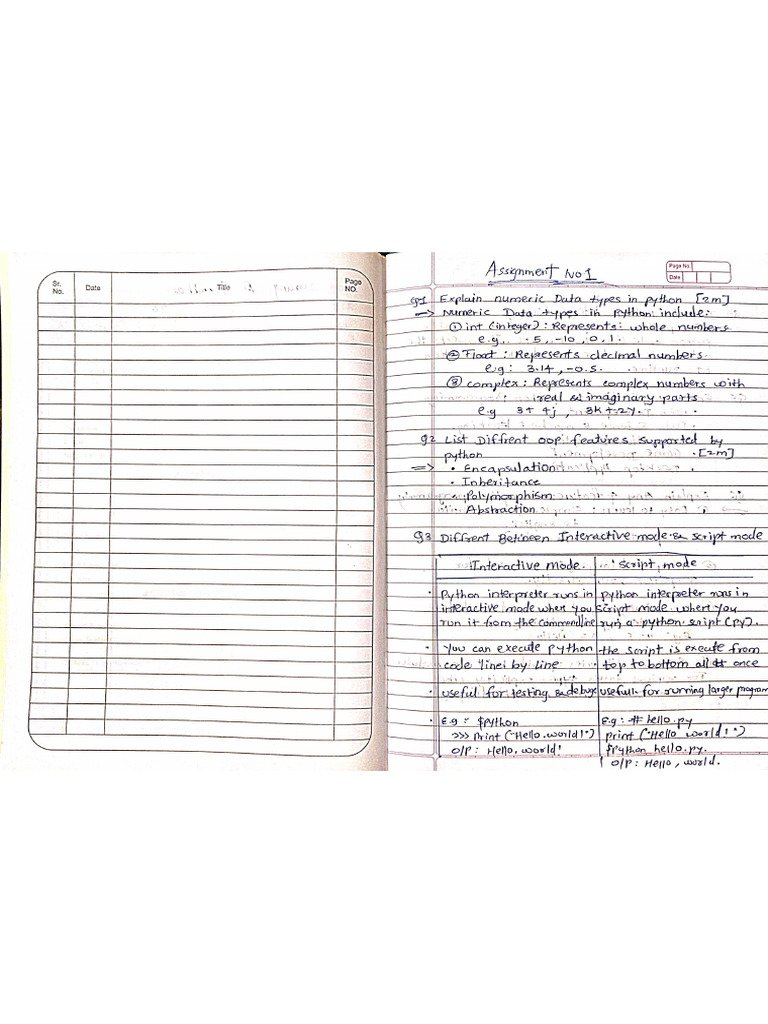 Sr. No.
Date
Title
Page NO.
Assignment No 1
Page No.
Date
Q1 Explain numeric Data types in python [2m]
→ Numeric Data types in Python include:
① int (integer) : Represents: whole numbers
e.g. 5, -10, 0, 1.
② Float : Represents decimal numbers.
e.g: 3.14, -0.5.
③ complex : Represents complex numbers with
real & imaginary parts
e.g 3+4j, 3k+2y.
Q2 List Diffrent oop features supported by
python [2m]
⇒ • Encapsulation
• Inheritance
Polymorphism
Abstraction
Q3 Diffrent Between Interactive mode & script mode
Interactive mode. script mode
• Python interpreter runs in python interpreter runs in
interactive mode when you script mode when you
run it from the commandline run a python script (py).
• You can execute python the script is execute from
code line by line • top to bottom all at once
• useful for testing & debug useful for running larger program
• E.g : $python E.g : # hello.py
>>> print ("Hello.world!") print ("Hello world!")
O/P : Hello, world! $python hello.py.
O/P : Hello, world.